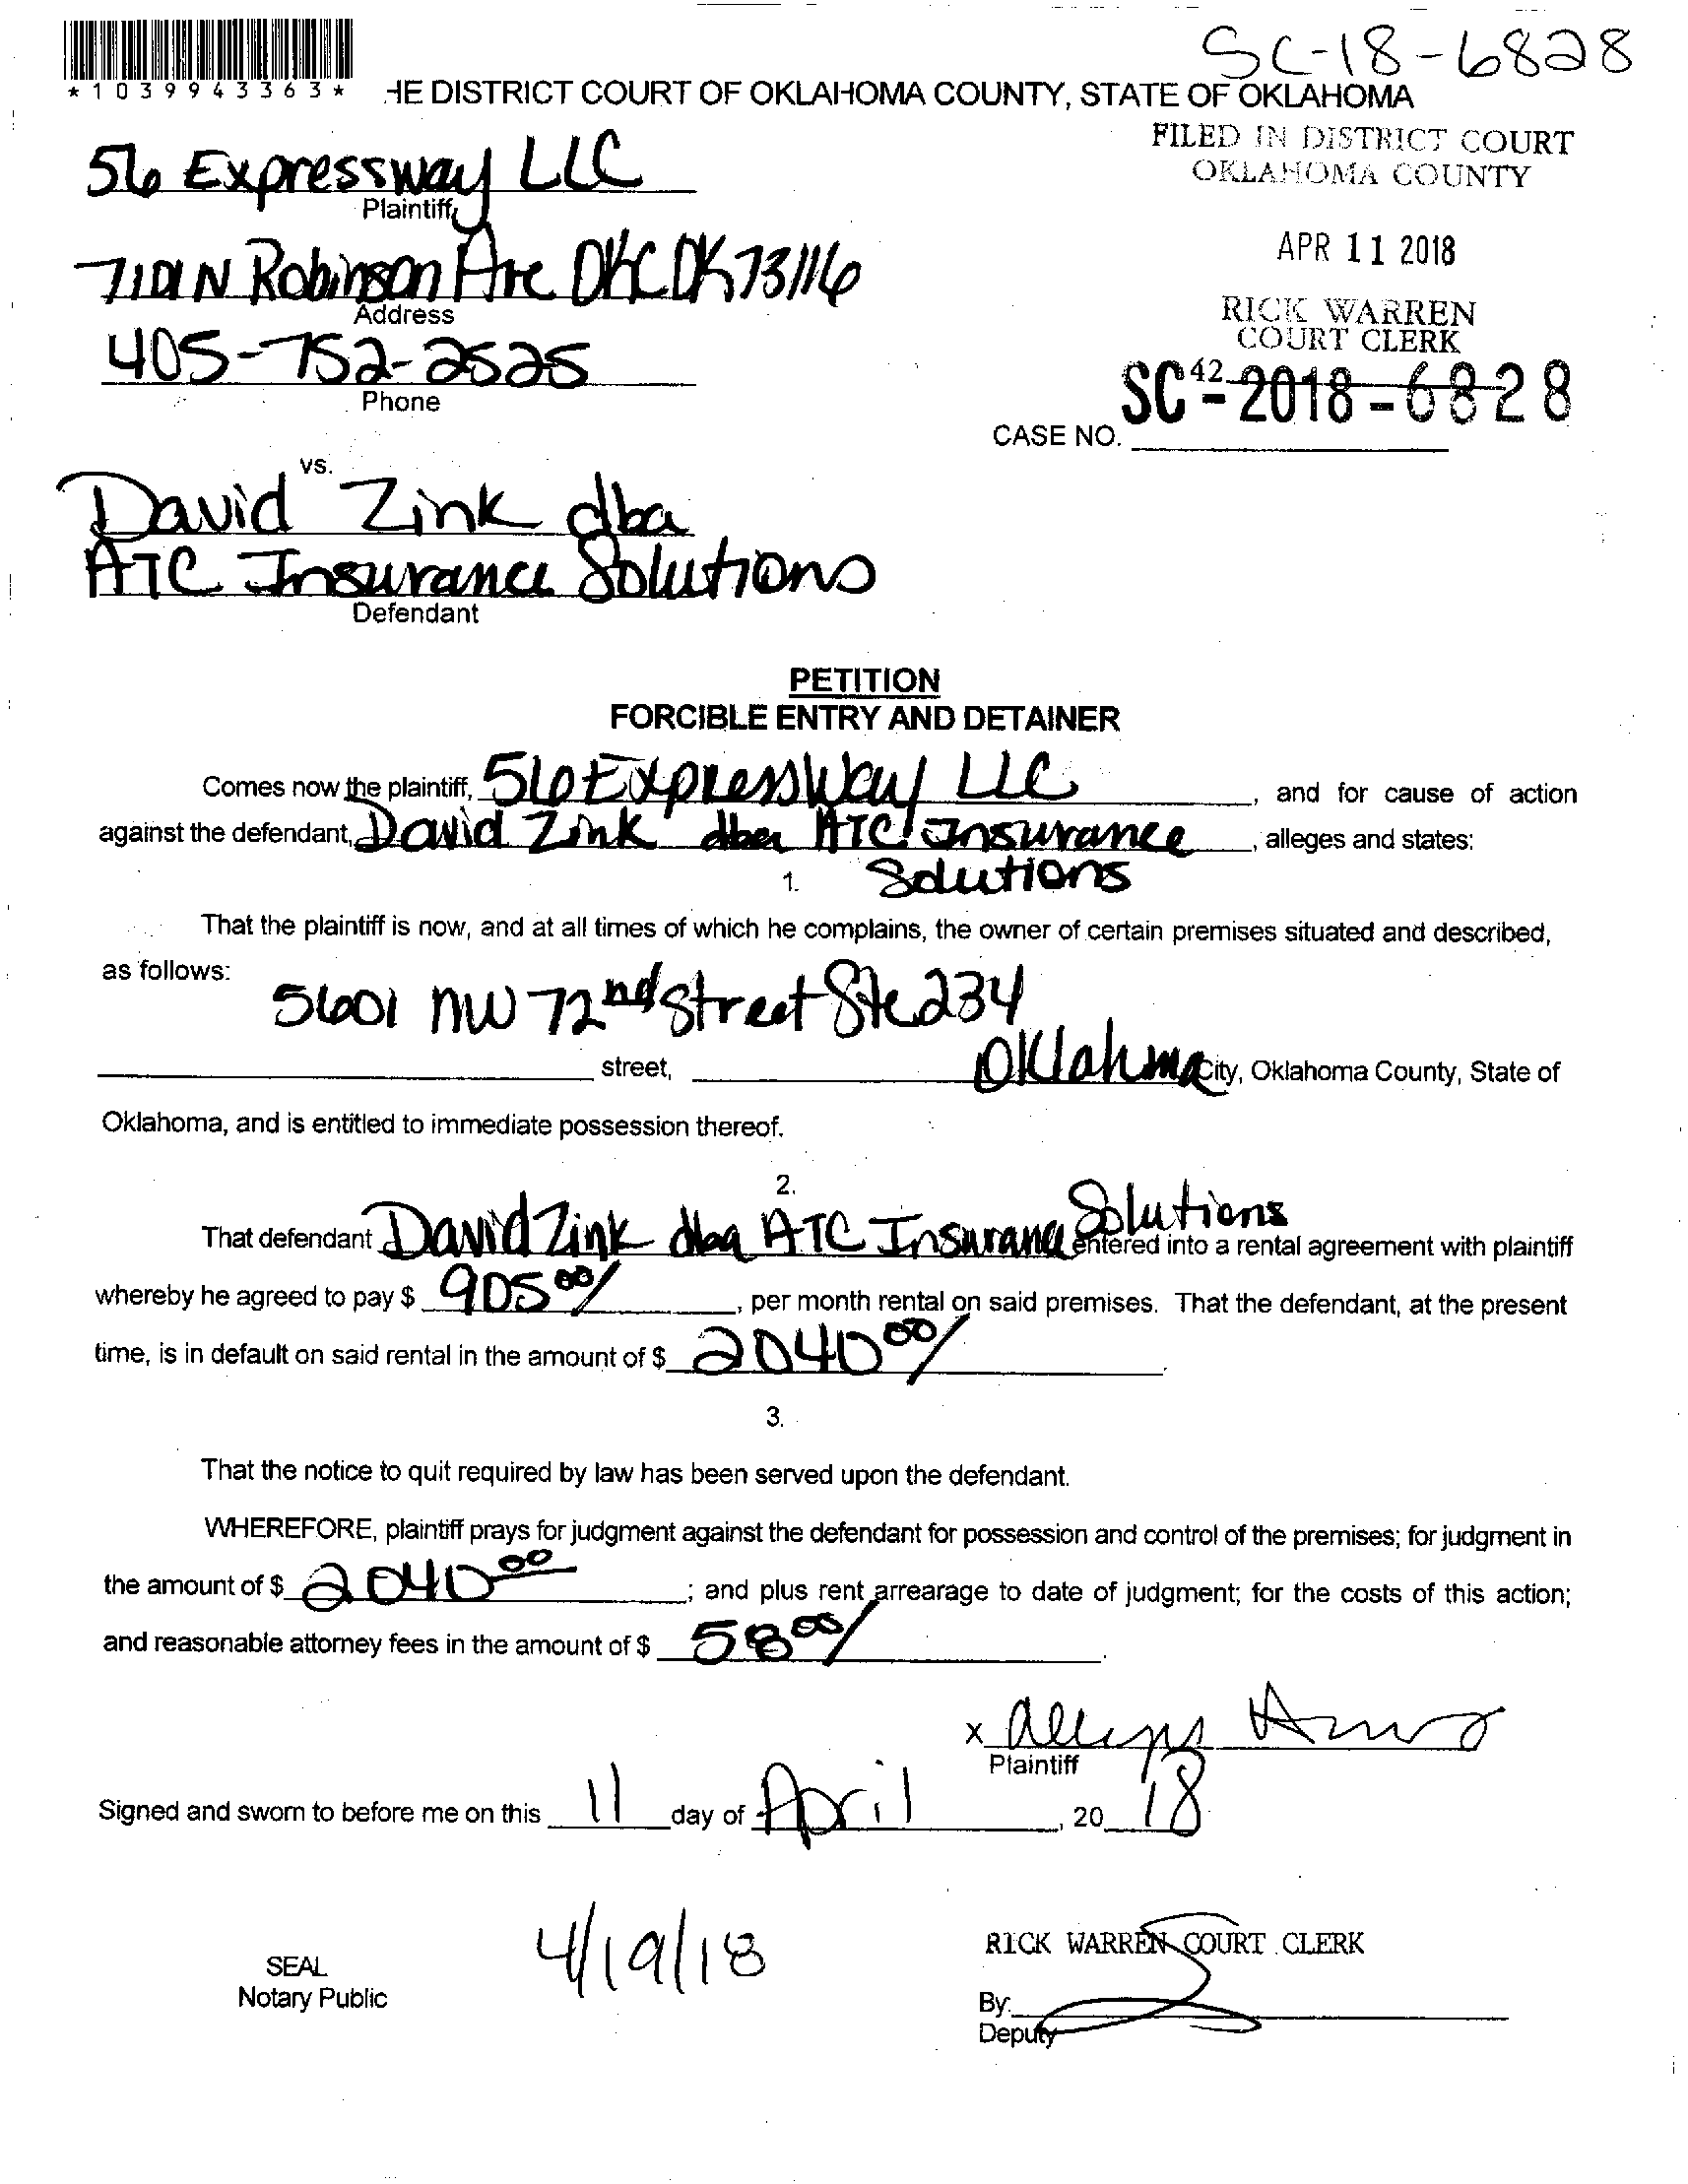 SC-18-6828
*1039943363*
HE DISTRICT COURT OF OKLAHOMA COUNTY, STATE OF OKLAHOMA
FILED IN DISTRICT COURT
OKLAHOMA COUNTY
56 Expressway LLC
Plaintiff
APR 11 2018
7101 N Robinson Ave OKC OK 73116
Address
RICK WARREN
COURT CLERK
405-752-2525
Phone
42
SC-2018-6828
CASE NO.
vs.
David Zink dba
ATC Insurance Solutions
Defendant
PETITION
FORCIBLE ENTRY AND DETAINER
Comes now the plaintiff, 56 Expressway LLC, and for cause of action
against the defendant, David Zink dba ATC Insurance, alleges and states:
1. Solutions
That the plaintiff is now, and at all times of which he complains, the owner of certain premises situated and described,
as follows:
5601 NW 72nd Street Ste 234
street, Oklahoma City, Oklahoma County, State of
Oklahoma, and is entitled to immediate possession thereof.
2.
That defendant David Zink dba ATC Insurance Solutions entered into a rental agreement with plaintiff
whereby he agreed to pay $ 905 00/, per month rental on said premises. That the defendant, at the present
time, is in default on said rental in the amount of $ 2040 00/.
3.
That the notice to quit required by law has been served upon the defendant.
WHEREFORE, plaintiff prays for judgment against the defendant for possession and control of the premises; for judgment in
the amount of $ 2040 00; and plus rent arrearage to date of judgment; for the costs of this action;
and reasonable attorney fees in the amount of $ 58 00/.
x
Plaintiff
Signed and sworn to before me on this 11 day of April, 20 18
4/19/18
RICK WARREN COURT CLERK
SEAL
Notary Public
By:
Deputy